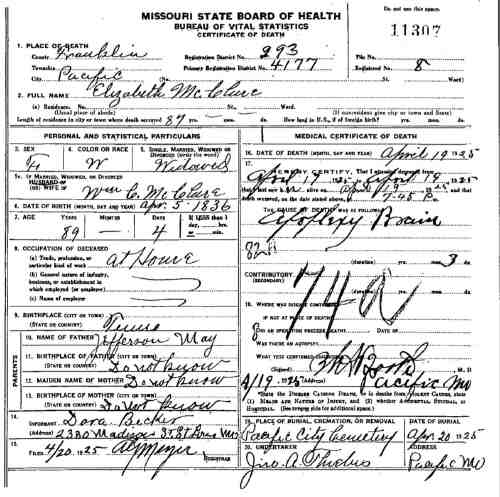 MISSOURI STATE BOARD OF HEALTH
BUREAU OF VITAL STATISTICS
CERTIFICATE OF DEATH
Do not use this space.
11307
1. PLACE OF DEATH
County Franklin
Registration District No. 293
File No.
Township
Primary Registration District No. 4177
Registered No. 8
City Pacific
(No.
St.
Ward)
2. FULL NAME Elizabeth McClure
(a) Residence. No. St. Ward.
(Usual place of abode)
(If nonresident give city or town and State)
Length of residence in city or town where death occurred 87 yrs. mos. ds.
How long in U.S., if of foreign birth? yrs. mos. ds.
PERSONAL AND STATISTICAL PARTICULARS
3. SEX
4. COLOR OR RACE W
5. SINGLE, MARRIED, WIDOWED OR DIVORCED (write the word) Widowed
5A. IF MARRIED, WIDOWED, OR DIVORCED
HUSBAND OF
(OR) WIFE OF Wm C. McClure
6. DATE OF BIRTH (MONTH, DAY AND YEAR) Apr. 5 - 1836
7. AGE YEARS MONTHS DAYS
If LESS than 1 day, hrs. or min.
89 — 4
8. OCCUPATION OF DECEASED
(a) Trade, profession, or particular kind of work At Home
(b) General nature of industry, business, or establishment in which employed (or employer)
(c) Name of employer
9. BIRTHPLACE (CITY OR TOWN)
(STATE OR COUNTRY) Tenn
PARENTS
10. NAME OF FATHER Jefferson May
11. BIRTHPLACE OF FATHER (CITY OR TOWN)
(STATE OR COUNTRY) Do not know
12. MAIDEN NAME OF MOTHER Do not know
13. BIRTHPLACE OF MOTHER (CITY OR TOWN)
(STATE OR COUNTRY) Do not know
14.
INFORMANT Dora Becker
(Address) 2330 Madison St. St Louis Mo
15.
FILED 4/20 1925
REGISTRAR
MEDICAL CERTIFICATE OF DEATH
16. DATE OF DEATH (MONTH, DAY AND YEAR) April 19 1925
17.
I HEREBY CERTIFY, That I attended deceased from
April 19, 1925, to April 19, 1925
that I last saw alive on April 19, 1925
death occurred, on the date stated above, at 7-45 P. m.
THE CAUSE OF DEATH WAS AS FOLLOWS:
Apoplexy Brain
82A
(duration) yrs. mos. 3 ds.
CONTRIBUTORY
(SECONDARY)
74a
(duration) yrs. mos. ds.
18. WHERE WAS DISEASE CONTRACTED
IF NOT AT PLACE OF DEATH?
DID AN OPERATION PRECEDE DEATH? DATE OF
WAS THERE AN AUTOPSY?
WHAT TEST CONFIRMED
(Signed) Booth, M. D
4/19, 1925 (Address) Pacific Mo
19. PLACE OF BURIAL, CREMATION, OR REMOVAL
DATE OF BURIAL
Pacific City Cemetery
Apr 20 1925
20. UNDERTAKER
ADDRESS
Jno. A. Thiebes
Pacific Mo